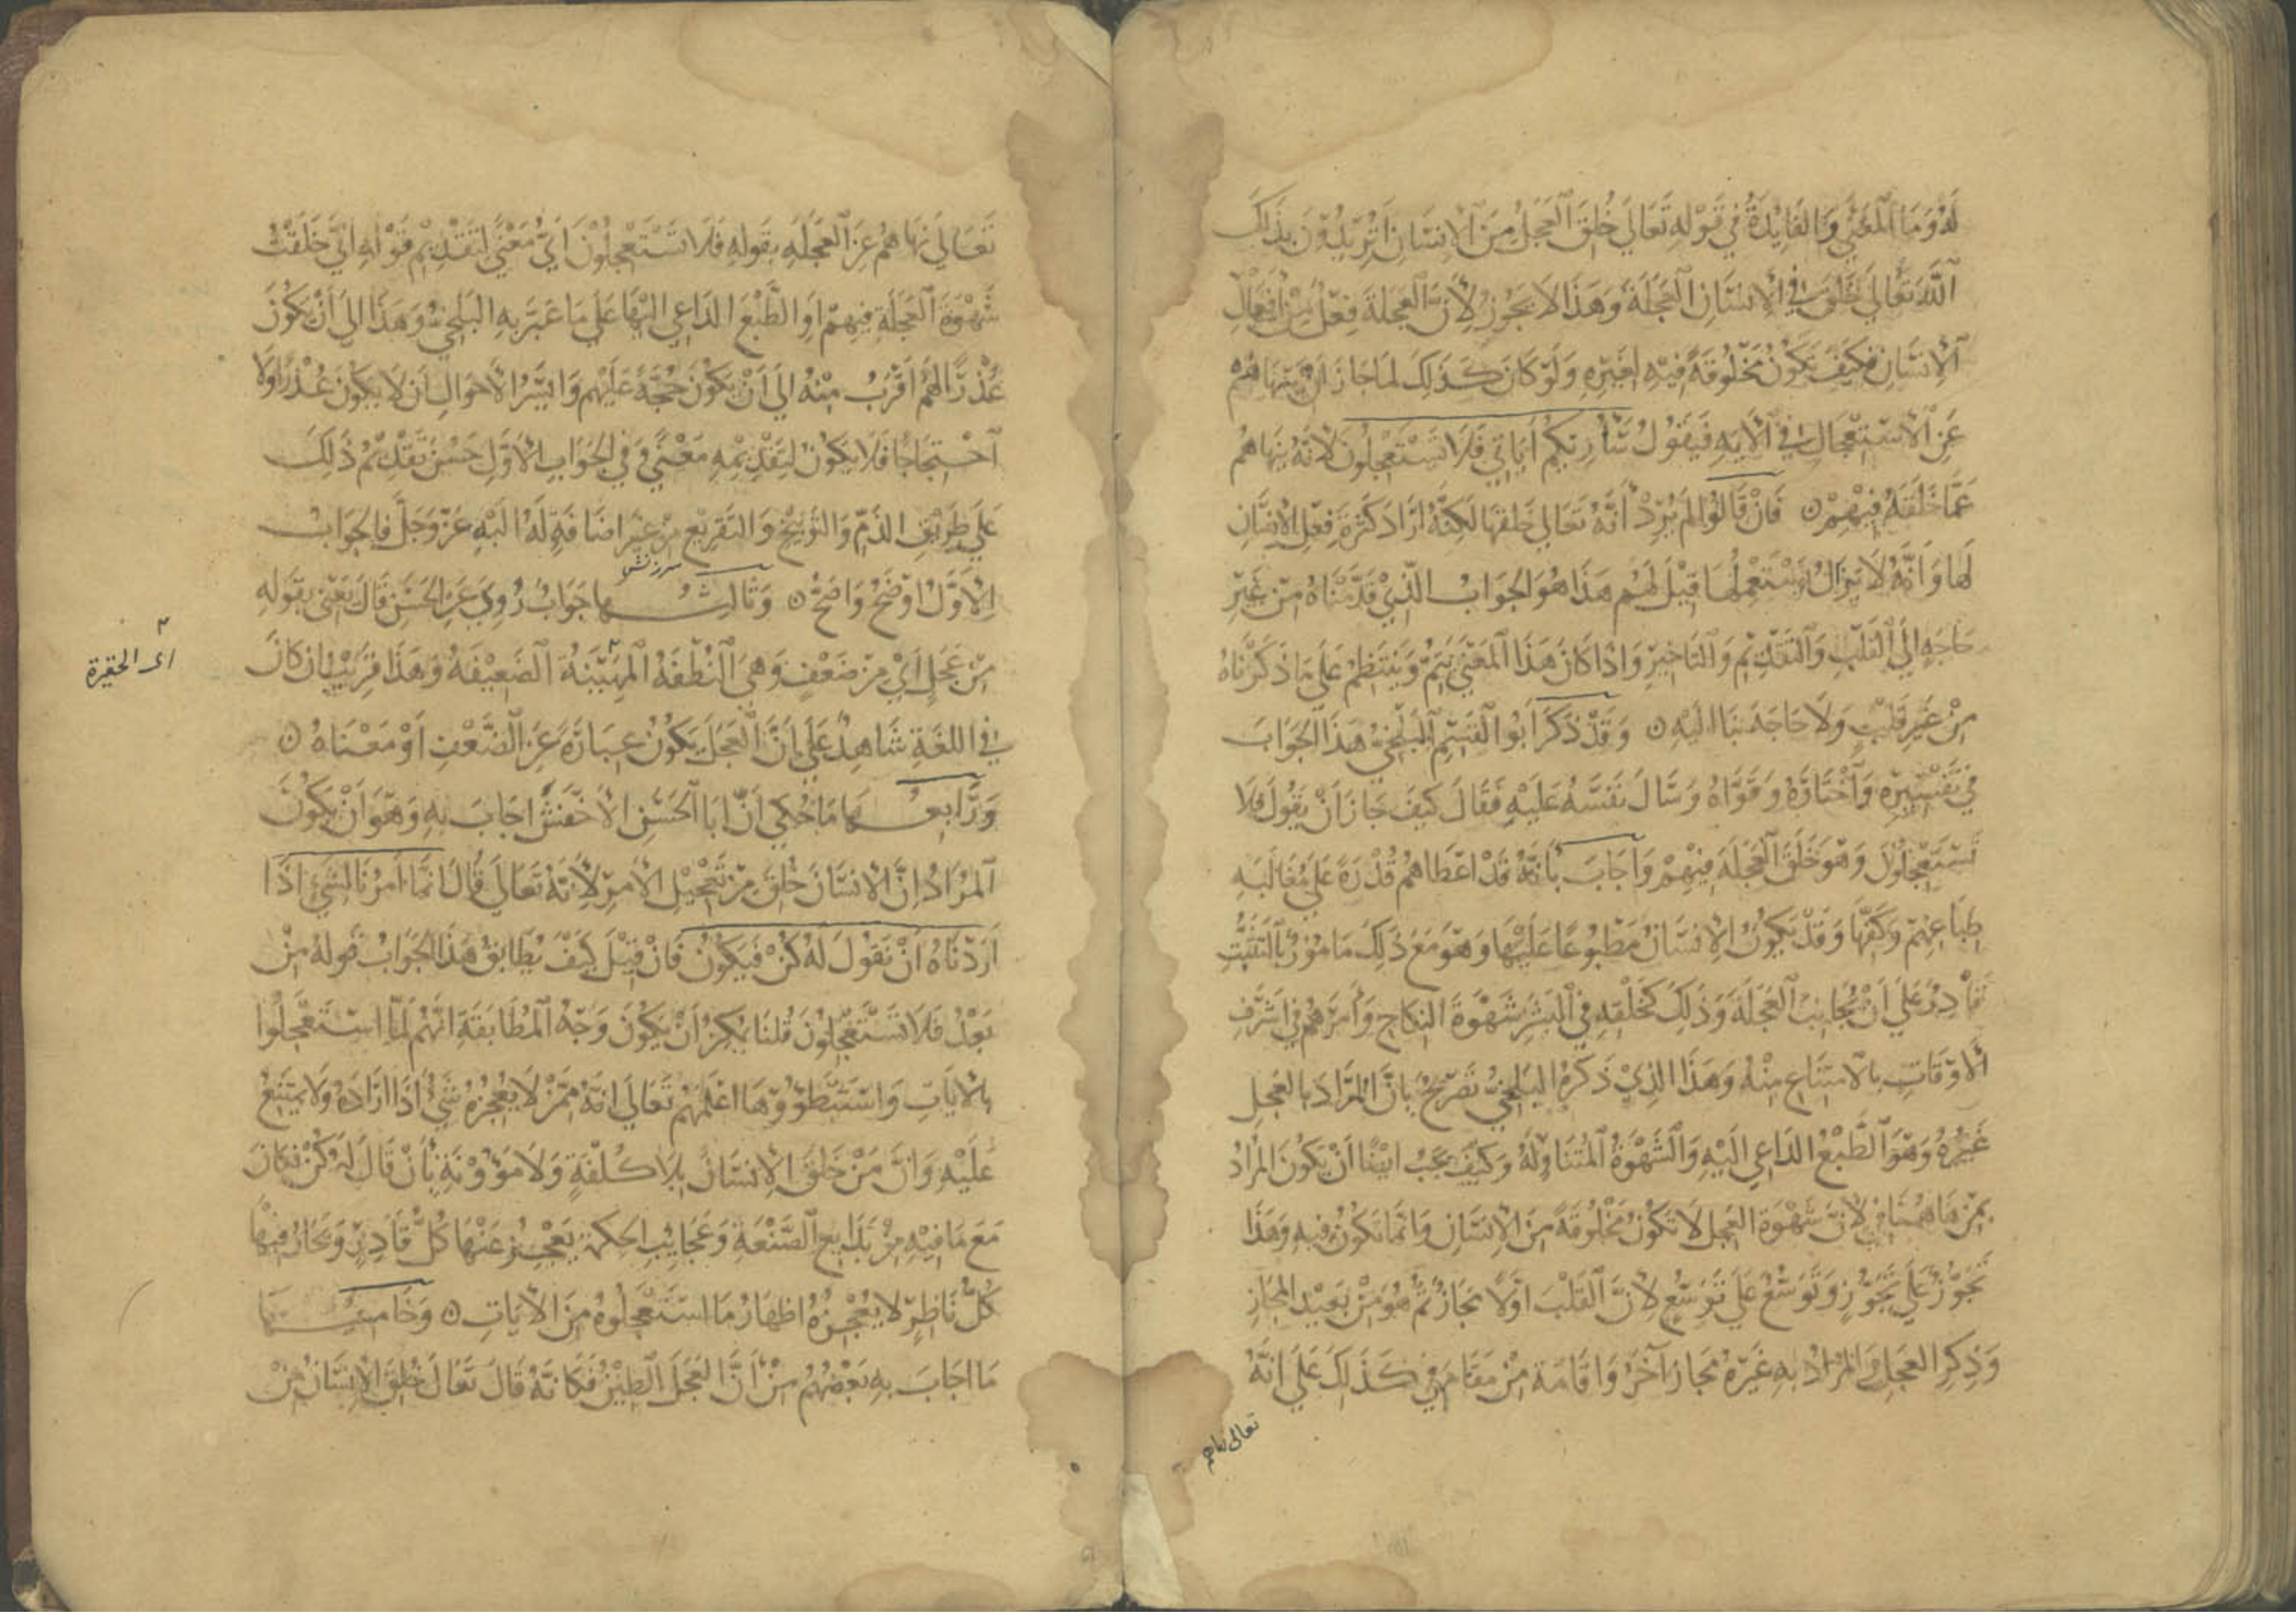 لَهُ وَمَا الْمَعْنَى وَالْفَايِدَةُ فِي قَوْلِهِ تَعَالَى خُلِقَ الْعَجَلُ مِنَ الْإِنْسَانِ أَتُرِيدُونَ بِذَلِكَ
اللَّهَ تَعَالَى خَلَقَ فِي الْإِنْسَانِ الْعَجَلَةَ وَهَذَا لَا يَجُوزُ لِأَنَّ الْعَجَلَةَ فِعْلٌ مِنْ أَفْعَالِ
الْإِنْسَانِ فَكَيْفَ يَكُونُ مَخْلُوقَةً فِيهِ لِغَيْرِهِ وَلَوْ كَانَ كَذَلِكَ لَمَا جَازَ أَنْ يَنْهَاهُمْ
عَنِ الْاسْتِعْجَالِ فِي الْآيَةِ فَيَقُولُ سَأُرِيكُمْ آيَاتِي فَلَا تَسْتَعْجِلُونَ لِأَنَّهُ يَنْهَاهُمْ
عَمَّا خَلَقَهُ فِيهِمْ ۝ فَإِنْ قَالُوا لَمْ يُرِدْ أَنَّهُ تَعَالَى خَلَقَهَا لَكِنَّهُ أَرَادَ كَثْرَةَ فِعْلِ الْإِنْسَانِ
لَهَا وَأَنَّهُ لَا يَزَالُ يَسْتَعْمِلُهَا قِيلَ لَهُمْ هَذَا هُوَ الْجَوَابُ الَّذِي قَدَّمْنَاهُ مِنْ غَيْرِ
حَاجَةٍ إِلَى الْقَلْبِ وَالتَّقْدِيمِ وَالتَّاخِيرِ وَإِذَا كَانَ هَذَا الْمَعْنَى يَتِمُّ وَيَنْتَظِمُ عَلَى مَا ذَكَرْنَاهُ
مِنْ غَيْرِ قَلْبٍ وَلَا حَاجَةَ بِنَا إِلَيْهِ ۝ وَقَدْ ذَكَرَ أَبُو الْقَسِمِ الْبَلْخِيُّ هَذَا الْجَوَابَ
فِي تَفْسِيرِهِ وَاخْتَارَهُ وَقَوَّاهُ وَسَأَلَ نَفْسَهُ عَلَيْهِ فَقَالَ كَيْفَ جَازَ أَنْ يَقُولَ فَلَا
تَسْتَعْجِلُونَ وَهُوَ خَلَقَ الْعَجَلَةَ فِيهِمْ وَأَجَابَ بِأَنَّهُ قَدْ أَعْطَاهُمْ قُدْرَةً عَلَى مُغَالَبَةِ
طِبَاعِهِمْ وَكَفِّهَا وَقَدْ يَكُونُ الْإِنْسَانُ مَطْبُوعًا عَلَيْهَا وَهُوَ مَعَ ذَلِكَ مَأْمُورٌ بِالتَّثَبُّتِ
قَادِرٌ عَلَى أَنْ يُجَانِبَ الْعَجَلَةَ وَذَلِكَ كَخَلْقِهِ فِي الْبَشَرِ شَهْوَةَ النِّكَاحِ وَأَمَرَهُمْ فِي أَشْرَفِ
الْأَوْقَاتِ بِالْامْتِنَاعِ مِنْهُ وَهَذَا الَّذِي ذَكَرَهُ الْبَلْخِيُّ تَصْرِيحٌ بِأَنَّ الْمُرَادَ بِالْعَجَلِ
غَيْرُهُ وَهُوَ الطَّبْعُ الدَّاعِي إِلَيْهِ وَالشَّهْوَةُ الْمُتَنَاوِلَةُ لَهُ وَكَيْفَ يَجِبُ أَيْضًا أَنْ يَكُونَ الْمُرَادُ
بِمِنْ هَاهُنَا فِي لِأَنَّ شَهْوَةَ الْعَجَلِ لَا تَكُونُ مَخْلُوقَةً مِنَ الْإِنْسَانِ وَإِنَّمَا تَكُونُ فِيهِ وَهَذَا
تَجَوُّزٌ عَلَى تَجَوُّزٍ وَتَوَسُّعٌ عَلَى تَوَسُّعٍ لِأَنَّ الْقَلْبَ أَوَّلًا مَجَازٌ ثُمَّ هُوَ مِنْ بَعِيدِ الْمَجَازِ
وَذِكْرِ الْعَجَلِ وَالْمُرَادُ بِهِ غَيْرُهُ مَجَازٌ آخَرُ وَإِقَامَةُ مِنْ مَقَامَ فِي كَذَلِكَ عَلَى أَنَّهُ
تعالى نهاهم
تَعَالَى نَهَاهُمْ عَنِ الْعَجَلَةِ بِقَوْلِهِ فَلَا تَسْتَعْجِلُونَ أَيُّ مَعْنًى لِتَقْدِيمِ قَوْلِهِ إِنِّي خَلَقْتُ
شَهْوَةَ الْعَجَلَةِ فِيهِمْ أَوِ الطَّبْعَ الدَّاعِيَ إِلَيْهَا عَلَى مَا عَبَّرَ بِهِ الْبَلْخِيُّ وَهَذَا إِلَى أَنْ يَكُونَ
عُذْرًا لَهُمْ أَقْرَبُ مِنْهُ إِلَى أَنْ يَكُونَ حُجَّةً عَلَيْهِمْ وَأَيْسَرُ الْأَحْوَالِ أَنْ لَا يَكُونَ عُذْرًا وَلَا
احْتِجَاجًا فَلَا يَكُونُ لِتَقْدِيمِهِ مَعْنًى وَفِي الْجَوَابِ الْأَوَّلِ حَسُنَ تَقْدِيمُ ذَلِكَ
عَلَى طَرِيقِ الذَّمِّ وَالتَّوْبِيخِ وَالتَّقْرِيعِ مِنْ غَيْرِ إِضَافَةٍ لَهُ إِلَيْهِ عَزَّ وَجَلَّ فَالْجَوَابُ
سرزنش
الْأَوَّلُ أَوْضَحُ وَاضِحٌ ۝ وَثَالِثُهَا جَوَابٌ رُوِيَ عَنِ الْحَسَنِ قَالَ يَعْنِي بِقَوْلِهِ
مِنْ عَجَلٍ أَيْ مِنْ ضَعْفٍ وَهِيَ النُّطْفَةُ الْمَهِينَةُ الضَّعِيفَةُ وَهَذَا قَرِيبٌ إِنْ كَانَ
اى الحقيرة
فِي اللُّغَةِ شَاهِدٌ عَلَى أَنَّ الْعَجَلَ يَكُونُ عِبَارَةً عَنِ الضَّعْفِ أَوْ مَعْنَاهُ ۝
وَرَابِعُهَا مَا حُكِيَ أَنَّ أَبَا الْحَسَنِ الْأَخْفَشَ أَجَابَ بِهِ وَهُوَ أَنْ يَكُونَ
الْمُرَادُ إِنَّ الْإِنْسَانَ خُلِقَ مِنْ تَعْجِيلِ الْأَمْرِ لِأَنَّهُ تَعَالَى قَالَ إِنَّمَا أَمْرُنَا لِشَيْءٍ إِذَا
أَرَدْنَاهُ أَنْ نَقُولَ لَهُ كُنْ فَيَكُونُ فَإِنْ قِيلَ كَيْفَ يُطَابِقُ هَذَا الْجَوَابُ قَوْلَهُ مِنْ
بَعْدُ فَلَا تَسْتَعْجِلُونَ قُلْنَا يُمْكِنُ أَنْ يَكُونَ وَجْهُ الْمُطَابَقَةِ أَنَّهُمْ لَمَّا اسْتَعْجَلُوا
بِالْآيَاتِ وَاسْتَبْطَؤُوهَا أَعْلَمَهُمْ تَعَالَى أَنَّهُ مِمَّنْ لَا يُعْجِزُهُ شَيْءٌ إِذَا أَرَادَهُ وَلَا يَمْتَنِعُ
عَلَيْهِ وَأَنَّ مَنْ خَلَقَ الْإِنْسَانَ بِلَا كُلْفَةٍ وَلَا مَؤُونَةٍ بِأَنْ قَالَ لَهُ كُنْ فَكَانَ
مَعَ مَا فِيهِ مِنْ بَدَايِعِ الصَّنْعَةِ وَعَجَايِبِ الْحِكْمَةِ يَعْجِزُ عَنْهَا كُلُّ قَادِرٍ وَيَحَارُ فِيهَا
كُلُّ نَاظِرٍ لَا يُعْجِزُهُ إِظْهَارُ مَا اسْتَعْجَلُوهُ مِنَ الْآيَاتِ ۝ وَخَامِسُهَا
مَا أَجَابَ بِهِ بَعْضُهُمْ مِنْ أَنَّ الْعَجَلَ الطِّينُ فَكَأَنَّهُ قَالَ تَعَالَى خُلِقَ الْإِنْسَانُ مِنْ